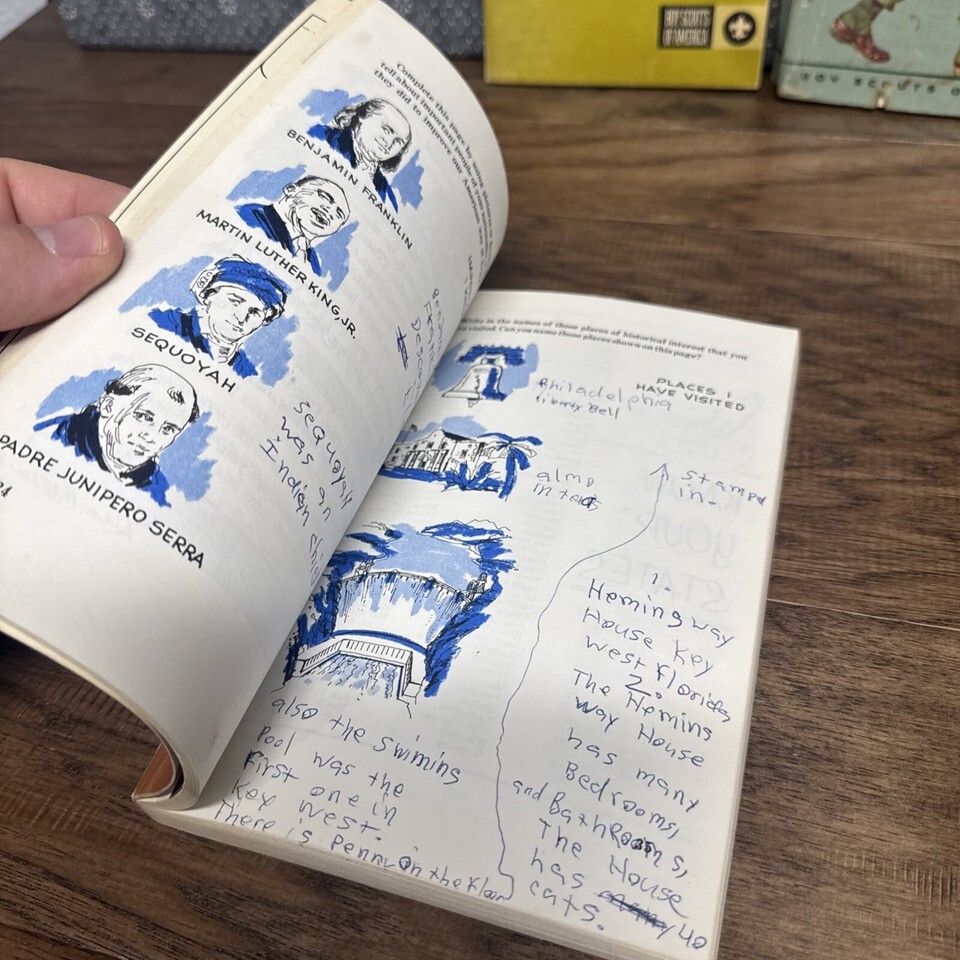 BOY SCOUTS
OF AMERICA
BOY SCOUTS O
Complete this page by using pictures
tell about important people of your
they did to improve our American way
BENJAMIN FRANKLIN
MARTIN LUTHER KING, JR.
SEQUOYAH
PADRE JUNIPERO SERRA
sequoyah
was an
Indian
Write in the names of those places of historical interest that you
visited. Can you name those places shown on this page?
PLACES I
HAVE VISITED
Philadelphia
liberty Bell
almo
in
stamped
in.
1.
Hemingway
House Key
West florida
2.
The Heming
way House
has many
Bedrooms,
and Bathrooms,
The House
has
40
cats.
also the swiming
Pool was the
first one in
Key West.
There is Penny on the floor